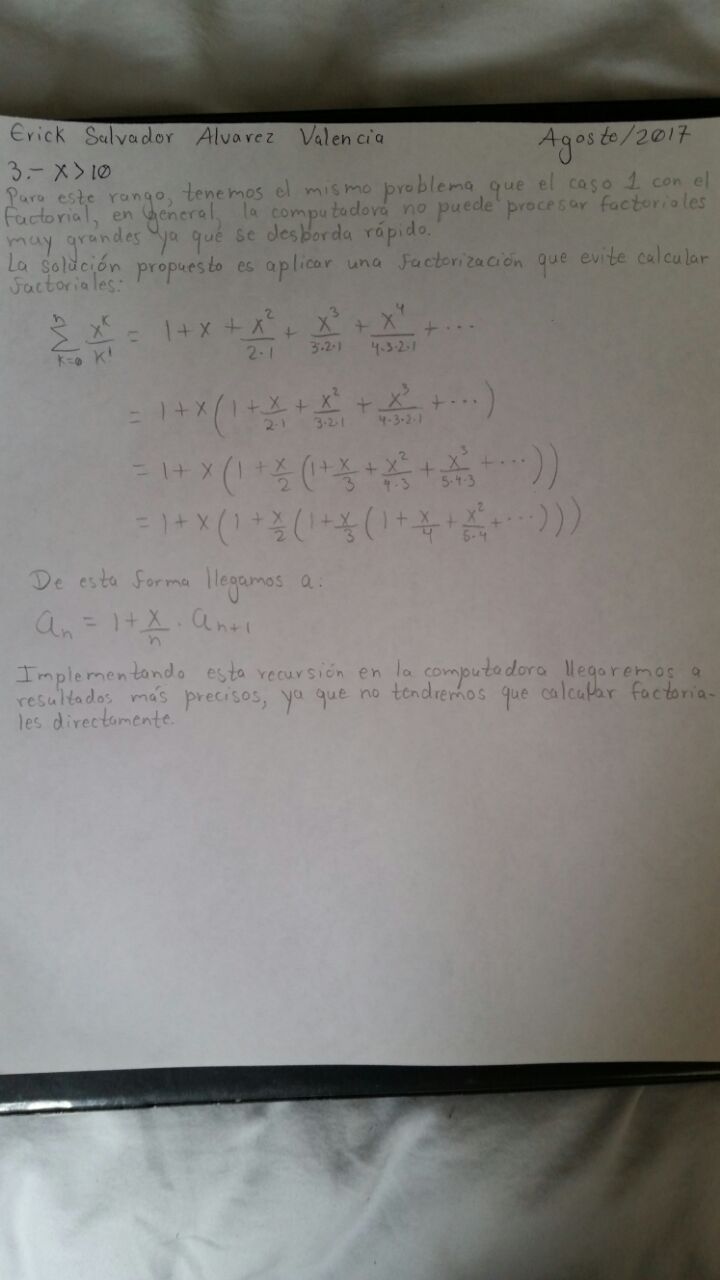 Erick Salvador Alvarez Valencia Agosto/2017
3.- x>10
Para este rango, tenemos el mismo problema que el caso 1 con el
factorial, en general, la computadora no puede procesar factoriales
muy grandes ya que se desborda rápido.
La solución propuesto es aplicar una factorización que evite calcular
factoriales:
n∑k=0 x^k/k! = 1 + x + x^2/2·1 + x^3/3·2·1 + x^4/4·3·2·1 + ···
= 1 + x(1 + x/2·1 + x^2/3·2·1 + x^3/4·3·2·1 + ···)
= 1 + x(1 + x/2(1 + x/3 + x^2/4·3 + x^3/5·4·3 + ···))
= 1 + x(1 + x/2(1 + x/3(1 + x/4 + x^2/5·4 + ···)))
De esta forma llegamos a:
a_n = 1 + x/n · a_n+1
Implementando esta recursión en la computadora llegaremos a
resultados más precisos, ya que no tendremos que calcular factoria-
les directamente.